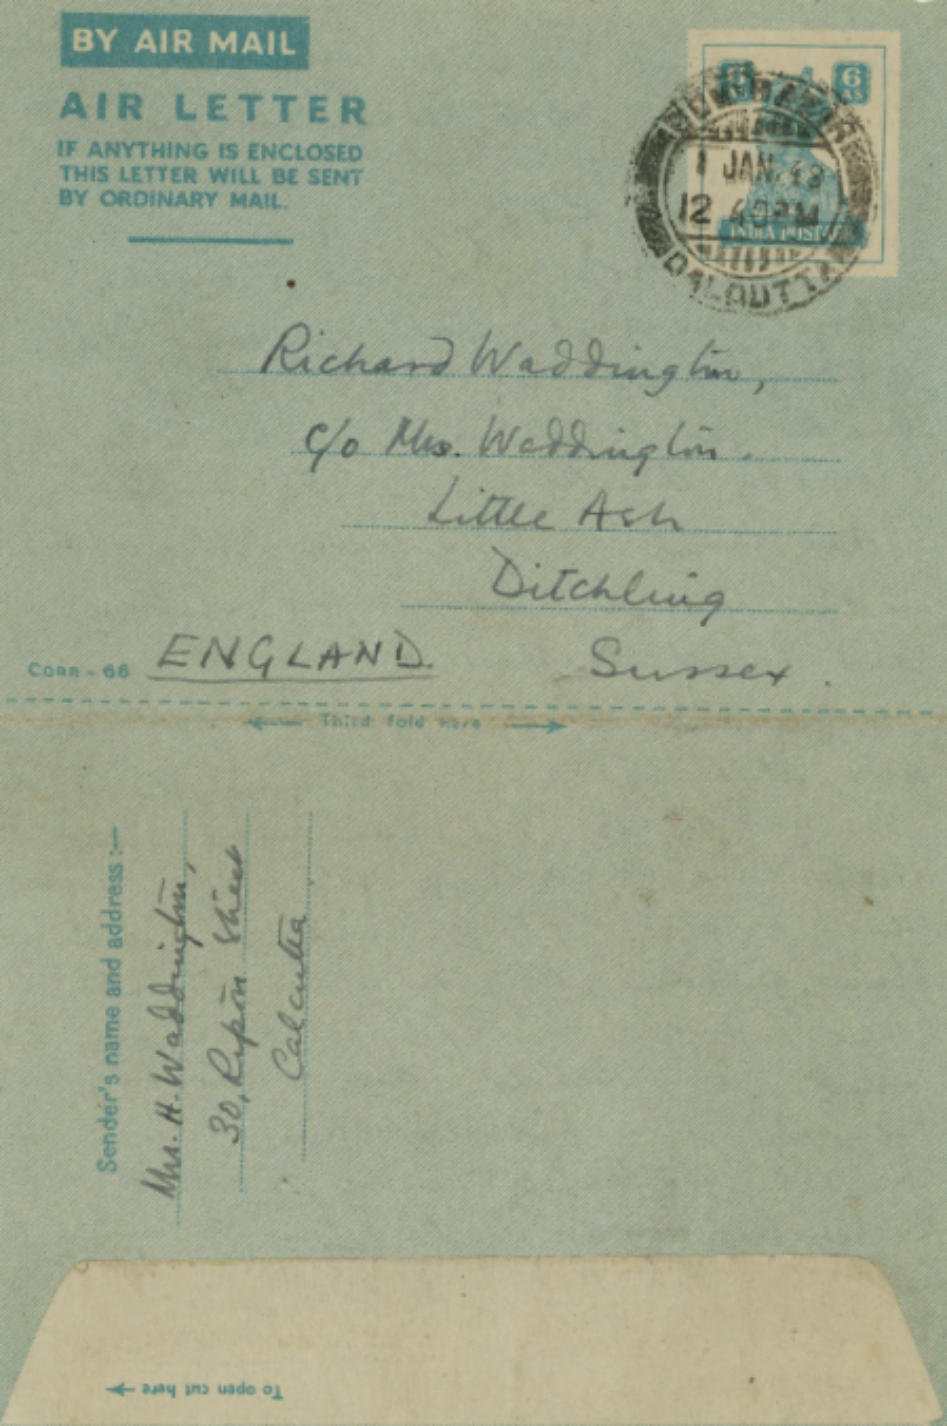 BY AIR MAIL
AIR LETTER
IF ANYTHING IS ENCLOSED
THIS LETTER WILL BE SENT
BY ORDINARY MAIL.
6 AS
INDIA POSTAGE
JAN. 49
12 40PM
CALCUTTA
Richard Waddington,
c/o Mrs. Waddington.
Little Ash
Ditchling
Sussex.
ENGLAND.
CORR-66
Third fold here
Sender's name and address :—
Mrs. H. Waddington,
30, Ripon Street
Calcutta
To open cut here